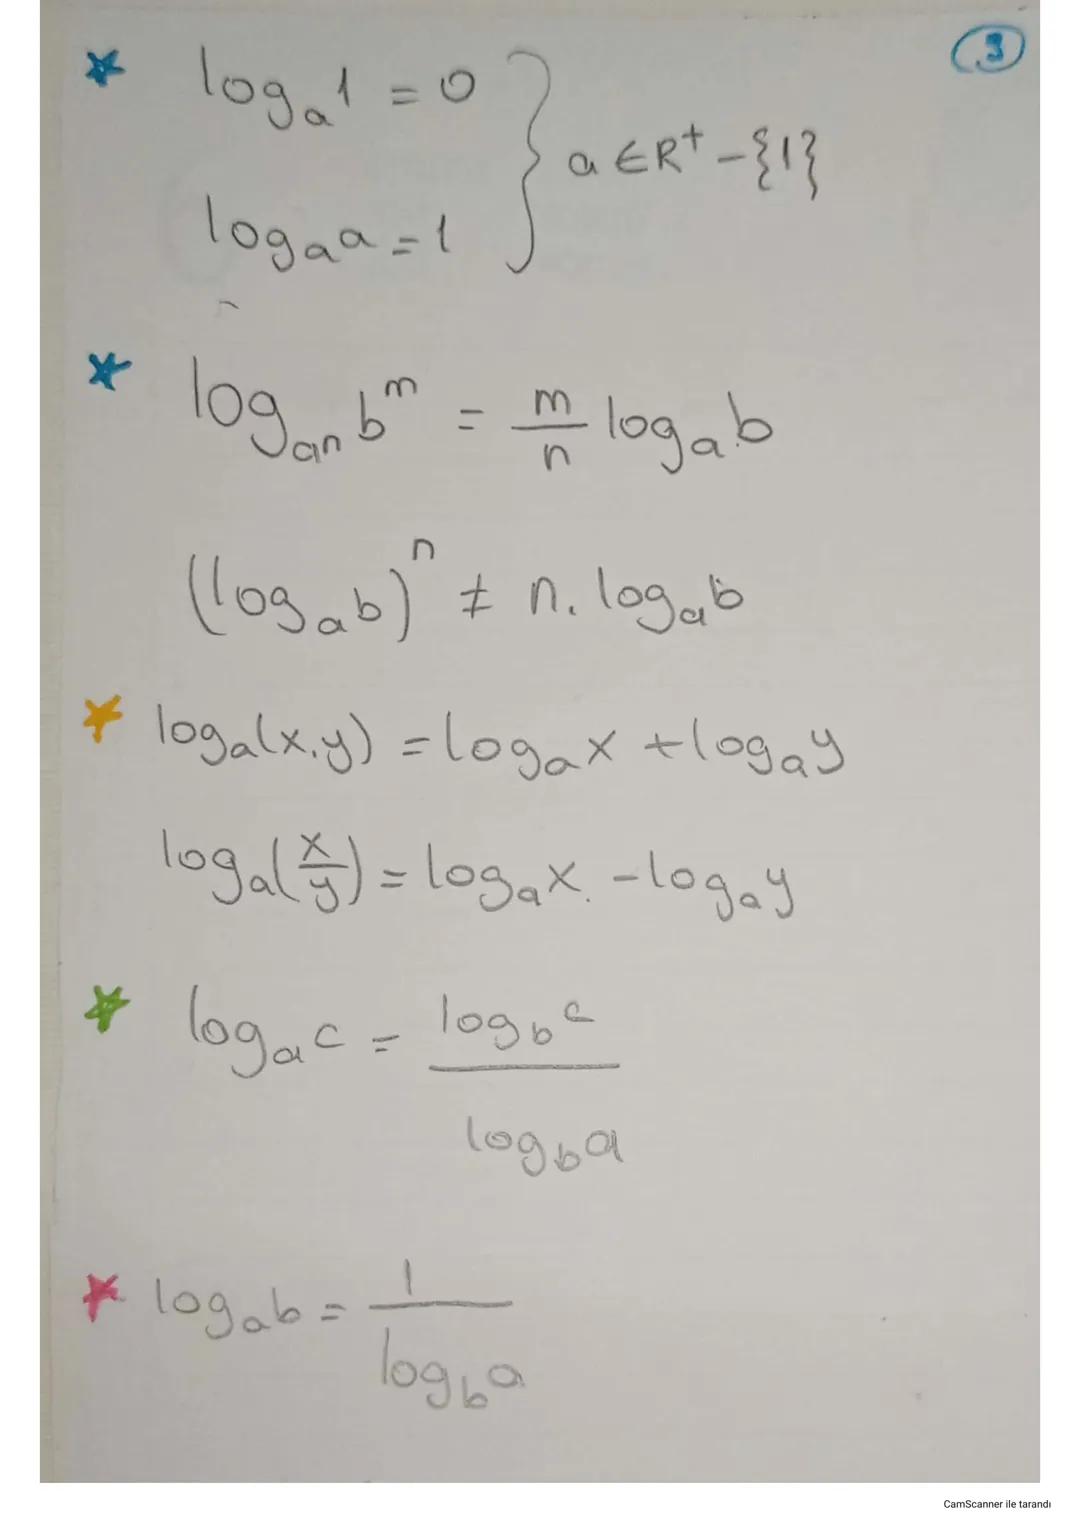 3
log_a 1 = 0
a ∈ R⁺ - {1}
log_a a = 1
log_aⁿ bᵐ = m/n log_a b
(log_a b)ⁿ ≠ n. log_a b
log_a(x.y) = log_a x + log_a y
log_a(x/y) = log_a x - log_a y
log_a c = log_b c / log_b a
log_a b = 1 / log_b a
CamScanner ile tarandı